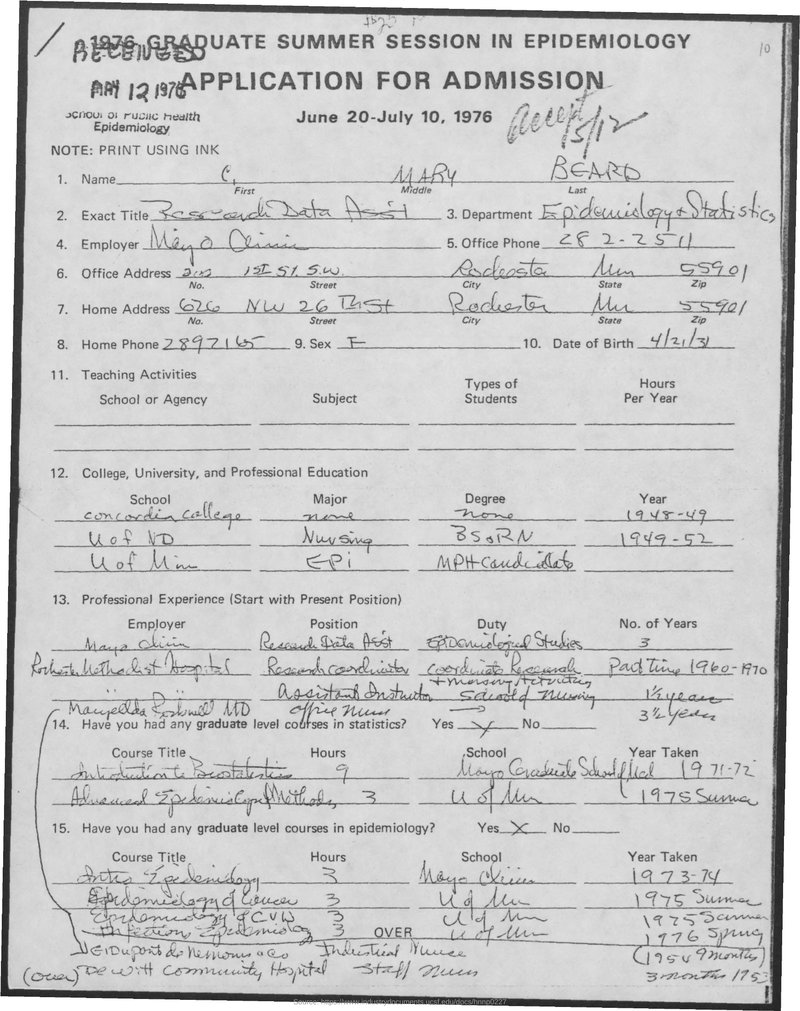 1976 GRADUATE SUMMER SESSION IN EPIDEMIOLOGY
RECEIVED
MAY 12 1976
APPLICATION FOR ADMISSION
School of Public Health
Epidemiology
June 20-July 10, 1976
accept 5/12
10
NOTE: PRINT USING INK
1. Name C. MARY BEARD
First Middle Last
2. Exact Title Research Data Asst 3. Department Epidemiology + Statistics
4. Employer Mayo Clinic 5. Office Phone 282-2511
6. Office Address 200 1st St. S.W. Rochester Minn 55901
No. Street City State Zip
7. Home Address 626 NW 26 Th St Rochester Mn 55901
No. Street City State Zip
8. Home Phone 2897165 9. Sex F 10. Date of Birth 4/21/31
11. Teaching Activities
School or Agency Subject Types of Students Hours Per Year
12. College, University, and Professional Education
School Major Degree Year
Concordia College none none 1948-49
U of ND Nursing BS & RN 1949-52
U of Minn EPi MPH candidate
13. Professional Experience (Start with Present Position)
Employer Position Duty No. of Years
Mayo Clinic Research Data Asst Epidemiological Studies 3
Rochester Methodist Hospital Research coordinator coordinate Research + nursing Activities Part time 1960-1970
" " assistant Instructor School of Nursing 1½ years
MD office nurse → 3½ years
14. Have you had any graduate level courses in statistics? Yes X No
Course Title Hours School Year Taken
Introduction to Biostatistics 9 Mayo Graduate School of Med 1971-72
Advanced Epidemiology Methods 3 U of Mn 1975 Summer
15. Have you had any graduate level courses in epidemiology? Yes X No
Course Title Hours School Year Taken
Intro Epidemiology 3 Mayo Clinic 1973-74
Epidemiology of Cancer 3 U of Mn 1975 Summer
Epidemiology of CVD 3 U of Mn 1975 Summer
Infectious Epidemiology 3 OVER U of Mn 1976 Spring
E I Dupont de Nemours & Co Industrial Nurse (1954 9 months)
(over) DeWitt Community Hospital Staff Nurse 3 months 1953
Source: https://www.industrydocuments.ucsf.edu/docs/hnnp0227